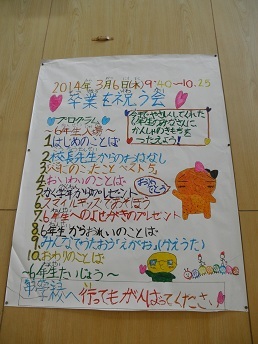 2014年3月6日(木)9:40〜10.25
卒業を祝う会
プログラム
今までやさしくしてくれた
6年生のみなさんに
かんしゃのきもちを
つたえよう!
〜6年生入場〜
1 はじめのことば
2 校長先生からのおはなし
3 心にのこったことベスト5
4 おいわいのことば
おめでとう
5
6 スマイルキッズであそぼう
7 6年生へのよせがきのプレゼント
8 6年生からおれいのことば
9 みんなでうたおう「えがお」
10 おわりのことば
〜6年生たいじょう〜
中学校へ行ってもがんばってください